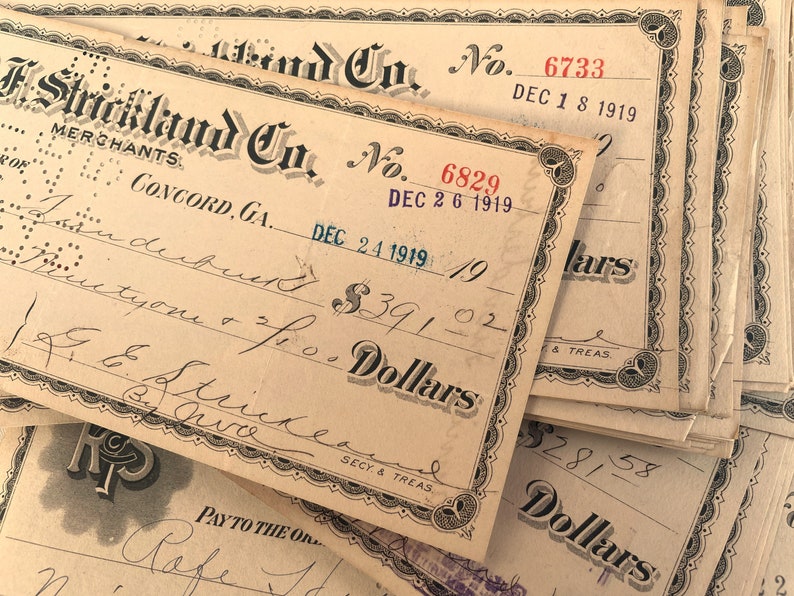 Strickland Co.
No. 6733
DEC 18 1919
19
Dollars
& TREAS.
F. Strickland Co.
MERCHANTS.
No. 6829
DEC 26 1919
CONCORD, GA.
DEC 24 1919
19
ER OF
$391.02
Ninetyone &
Dollars
G. E. Strickland
By
SECY. & TREAS.
$281.58
Dollars
PAY TO THE OR
Rafe